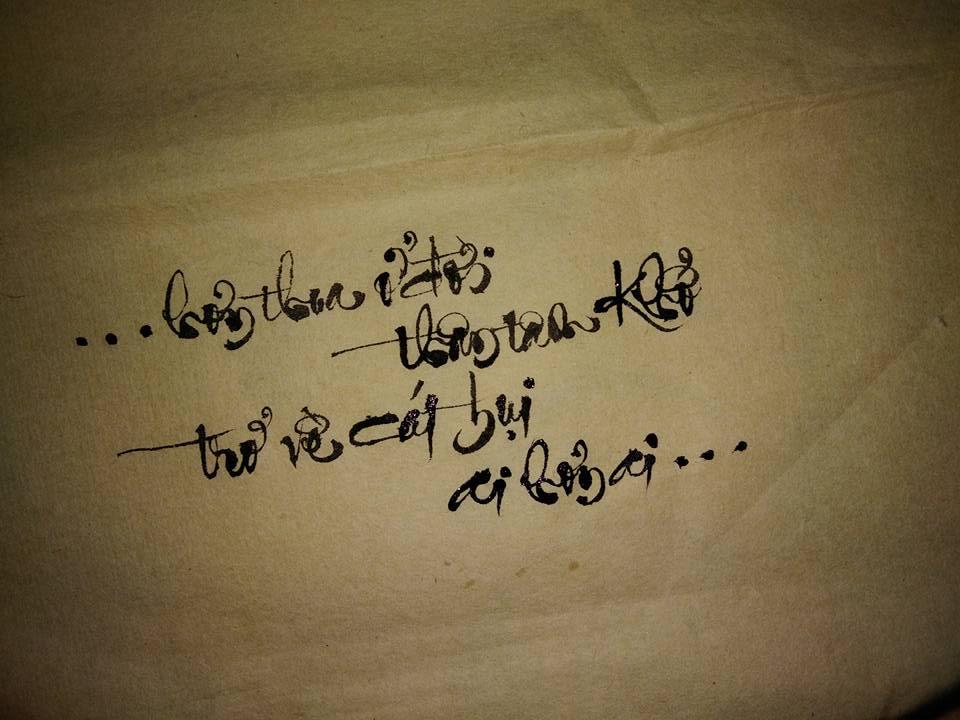 ...hơn thua ở đời
thân tâm khổ
trở về cát bụi
ai hơn ai...